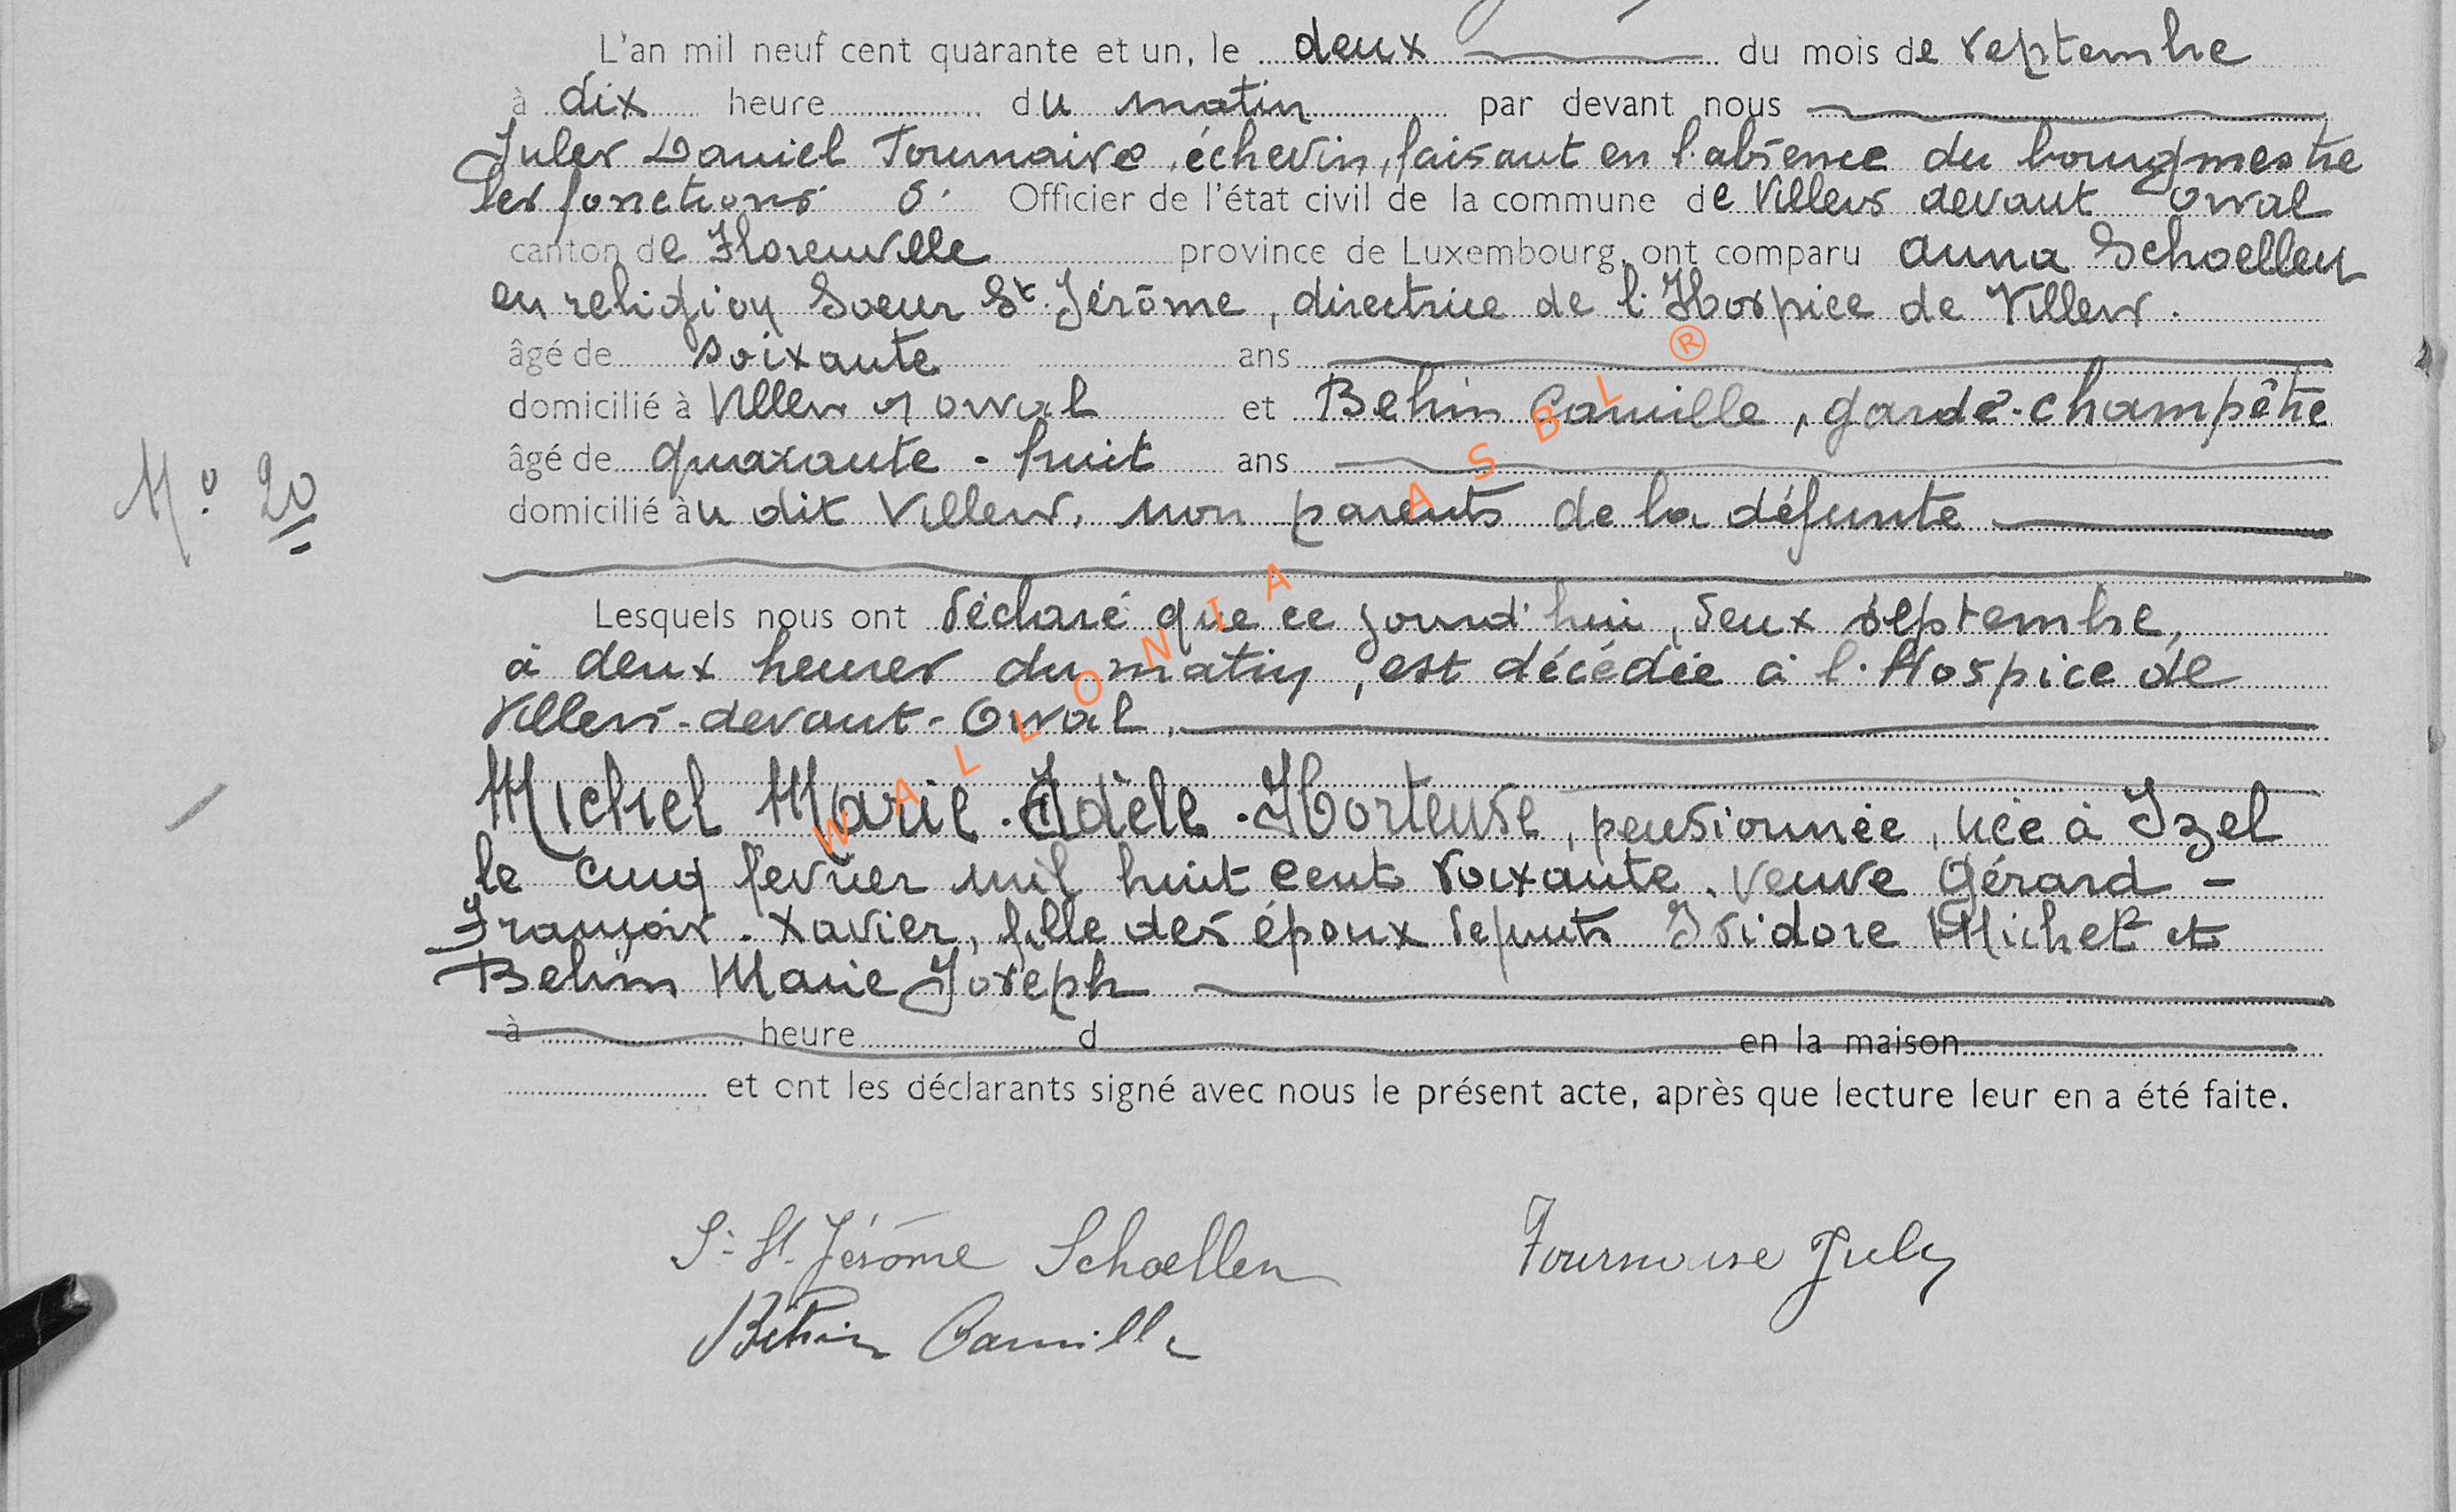 L'an mil neuf cent quarante et un, le deux du mois de septembre
à dix heure du matin par devant nous
Jules Daniel Fournaise, échevin, faisant en l'absence du bourgmestre
les fonctions d' Officier de l'état civil de la commune de Villers devant Orval
canton de Florenville province de Luxembourg, ont comparu Anna Schoellen
en religion Soeur St. Jérôme, directrice de l'Hospice de Villers.
âgé de soixante ans
domicilié à Villers d'Orval et Behin Camille, garde-champêtre
âgé de quarante-huit ans
domicilié àu dit Villers, non parents de la défunte
N° 20
Lesquels nous ont déclaré que ce jourd'hui, deux septembre,
à deux heures du matin, est décédée à l'Hospice de
Villers-devant-Orval,
Michel Marie-Adèle-Hortense, pensionnée, née à Izel
le cinq fevrier mil huit cent soixante. veuve Gérard -
François-Xavier, fille des époux defunts Isidore Michel et
Behin Marie Joseph
à heure d en la maison
et ont les déclarants signé avec nous le présent acte, après que lecture leur en a été faite.
Sr St. Jérôme Schoellen Fournaise Jules
Behin Camille
WALLONIA ASBL ®